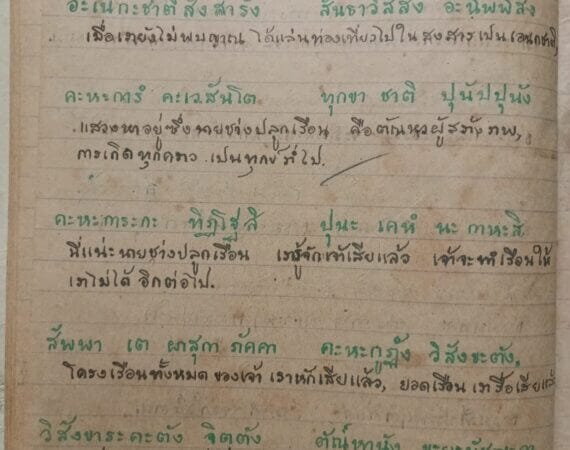 อะเนกะชาติสังสารัง สันธาวิสสัง อะนิพพิสัง
เมื่อเรายังไม่พบญาณ ได้แล่นท่องเที่ยวไปในสงสารเป็นเอนกชาติ
คะหะการํ คะเวสันโต ทุกขา ชาติ ปุนัปปุนัง
แสวงหาอยู่ซึ่งนายช่างปลูกเรือน คือตัณหาผู้สร้างภพ,
การเกิดทุกคราว เป็นทุกข์ร่ำไป.
คะหะการะกะ ทิฏโฐสิ ปุนะ เคหํ นะ กาหะสิ
นี่แน่ะนายช่างปลูกเรือน เรารู้จักเจ้าเสียแล้ว เจ้าจะทำเรือนให้
เราไม่ได้ อีกต่อไป.
สัพพา เต ผาสุกา ภัคคา คะหะกูฏัง วิสังขะตัง,
โครงเรือนทั้งหมดของเจ้า เราหักเสียแล้ว, ยอดเรือน เรารื้อเสียแล้ว
วิสังขาระคะตัง จิตตัง ตัณหานัง